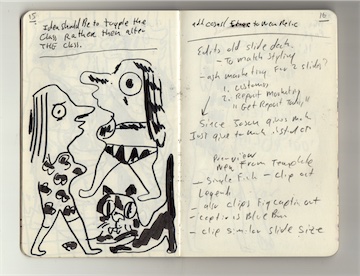 15
Idea should be to topple the
Class rather then alter
THE Class.
16
add casual to
Edits old slide deck.
- To match styling
- ask marketing For 2 slides,
1. customer,
2. Report Marketing
"Get Report Today"
Since Jason gives
Just give to
New From Template
- Single Fish - clip art
Legend
- also clips Fig caption out
- caption is Blue
- clip similar slide size